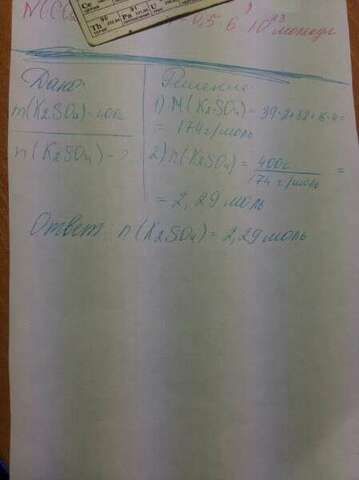 Ce
Th
Pa
U
0,5·6·10²³ молекул
Дано:
m(K₂SO₄)=400г
n(K₂SO₄)-?
Решение
1) M(K₂SO₄)=39·2+32+16·4=
=174г/моль
2) n(K₂SO₄)= 400г / 174г/моль =
= 2,29 моль
Ответ: n(K₂SO₄)=2,29 моль